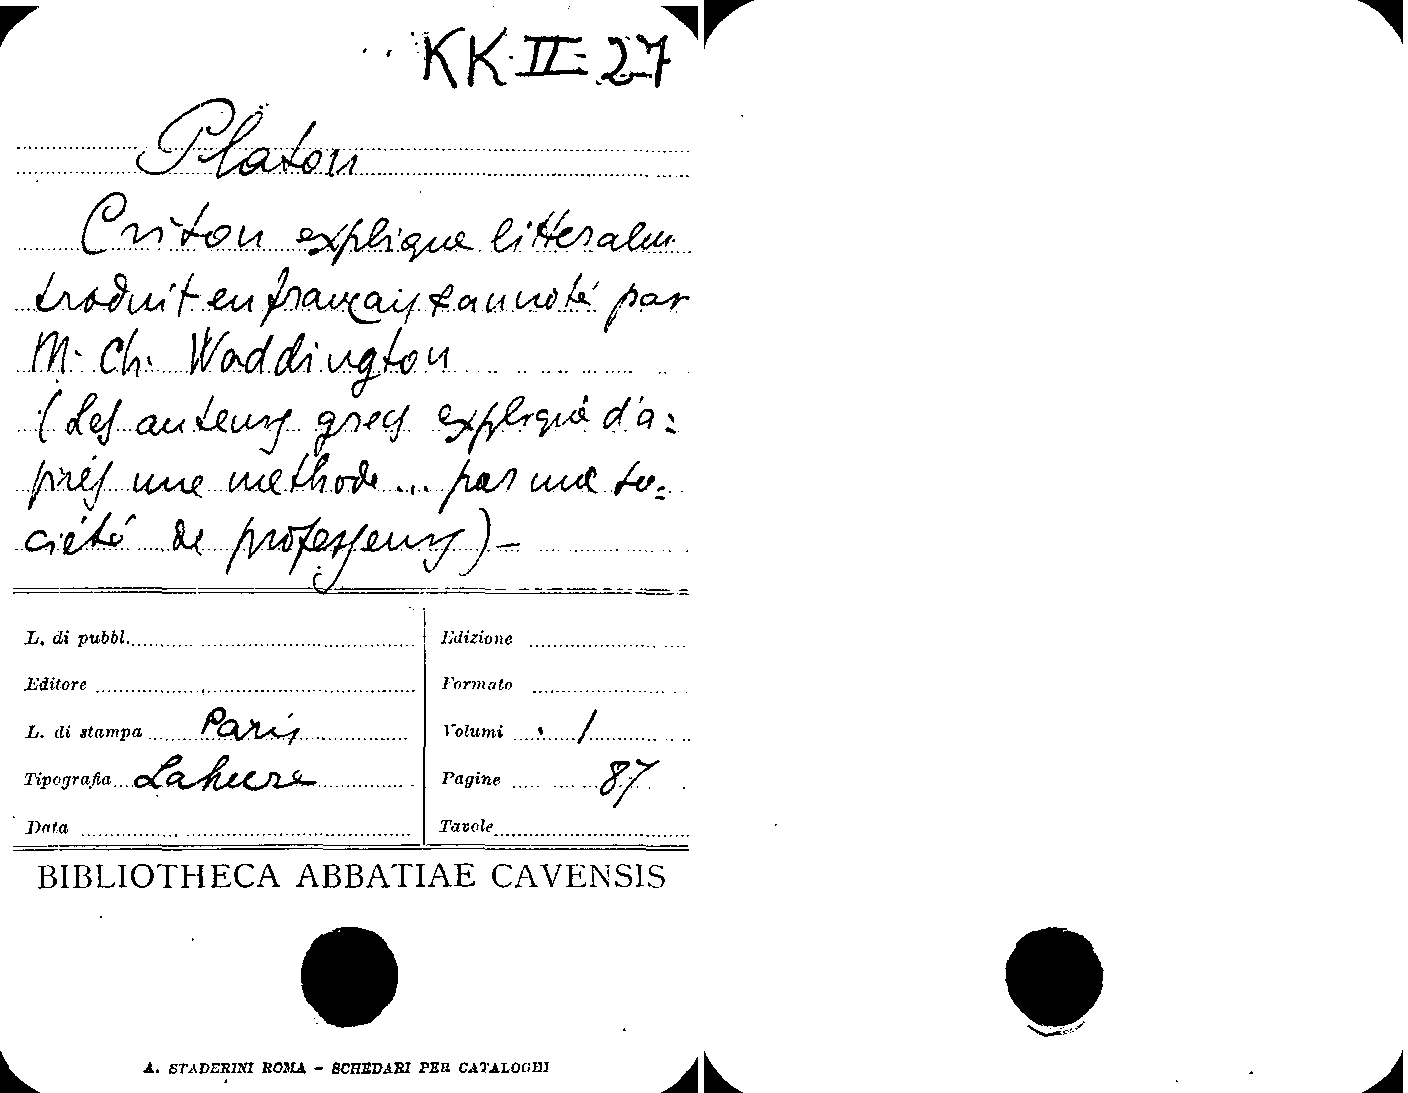 KK-II-27
Platon
Criton explique litteralm.
traduit en français & annoté par
M. Ch. Waddington
(Les auteurs grecs expliqué d'a=
prés une methode... par une so=
ciété de professeurs) -
L. di pubbl.
Edizione
Editore
Formato
L. di stampa Paris
Volumi 1
Tipografia Lahure
Pagine 87
Data
Tavole
BIBLIOTHECA ABBATIAE CAVENSIS
A. STADERINI ROMA - SCHEDARI PER CATALOGHI